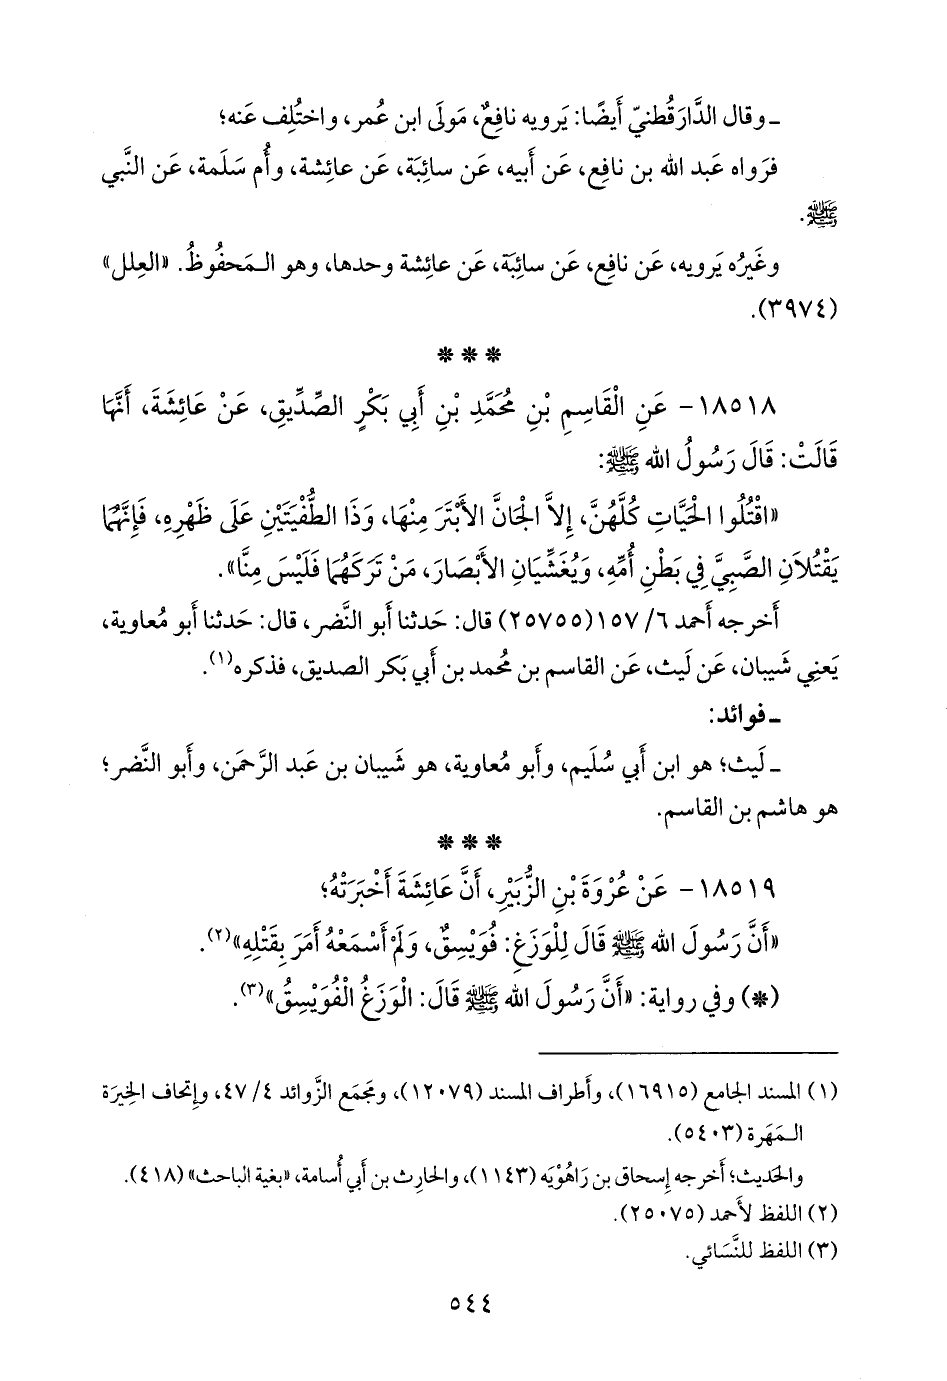 ـ وقال الدَّارَقُطنيّ أَيضًا: يَرويه نافِعٌ، مَولَى ابن عُمر، واختُلِف عَنه؛
فرَواه عَبد الله بن نافِع، عَن أَبيه، عَن سائِبَة، عَن عائِشة، وأُم سَلَمة، عَن النَّبي
ﷺ.
وغَيرُه يَرويه، عَن نافِع، عَن سائِبَة، عَن عائِشة وحدها، وهو الـمَحفُوظُ. «العِلل»
(٣٩٧٤).
* * *
١٨٥١٨- عَنِ الْقَاسِمِ بْنِ مُحَمَّدِ بْنِ أَبِي بَكْرٍ الصِّدِّيقِ، عَنْ عَائِشَةَ، أَنَّهَا
قَالَتْ: قَالَ رَسُولُ الله ﷺ:
«اقْتُلُوا الْحَيَّاتِ كُلَّهُنَّ، إِلاَّ الْجَانَّ الأَبْتَرَ مِنْهَا، وَذَا الطُّفْيَتَيْنِ عَلَى ظَهْرِهِ، فَإِنَّهُمَا
يَقْتُلاَنِ الصَّبِيَّ فِي بَطْنِ أُمِّهِ، وَيُغَشِّيَانِ الأَبْصَارَ، مَنْ تَرَكَهُمَا فَلَيْسَ مِنَّا».
أَخرجه أحمد ٦/ ١٥٧ (٢٥٧٥٥) قال: حَدثنا أَبو النَّضر، قال: حَدثنا أَبو مُعاوية،
يَعنِي شَيبان، عَن لَيث، عَن القاسم بن مُحمد بن أَبي بَكر الصديق، فذكره(١).
ـ فوائد:
ـ لَيث؛ هو ابن أَبي سُلَيم، وأَبو مُعاوية، هو شَيبان بن عَبد الرَّحمَن، وأَبو النَّضر؛
هو هاشم بن القاسم.
* * *
١٨٥١٩- عَنْ عُرْوَةَ بْنِ الزُّبَيْرِ، أَنَّ عَائِشَةَ أَخْبَرَتْهُ؛
«أَنَّ رَسُولَ الله ﷺ قَالَ لِلْوَزَغِ: فُوَيْسِقٌ، وَلَمْ أَسْمَعْهُ أَمَرَ بِقَتْلِهِ»(٢).
(*) وفي رواية: «أَنَّ رَسُولَ الله ﷺ قَالَ: الْوَزَغُ الْفُوَيْسِقُ»(٣).
(١) المسند الجامع (١٦٩١٥)، وأَطراف المسند (١٢٠٧٩)، ومَجمَع الزَّوائد ٤/ ٤٧، وإتحاف الخِيرَة
الـمَهَرة (٥٤٠٣).
والحَديث؛ أخرجه إسحاق بن رَاهُوْيَه (١١٤٣)، والحارِث بن أَبي أُسامة، «بغية الباحث» (٤١٨).
(٢) اللفظ لأَحمد (٢٥٠٧٥).
(٣) اللفظ للنَّسَائي.
٥٤٤